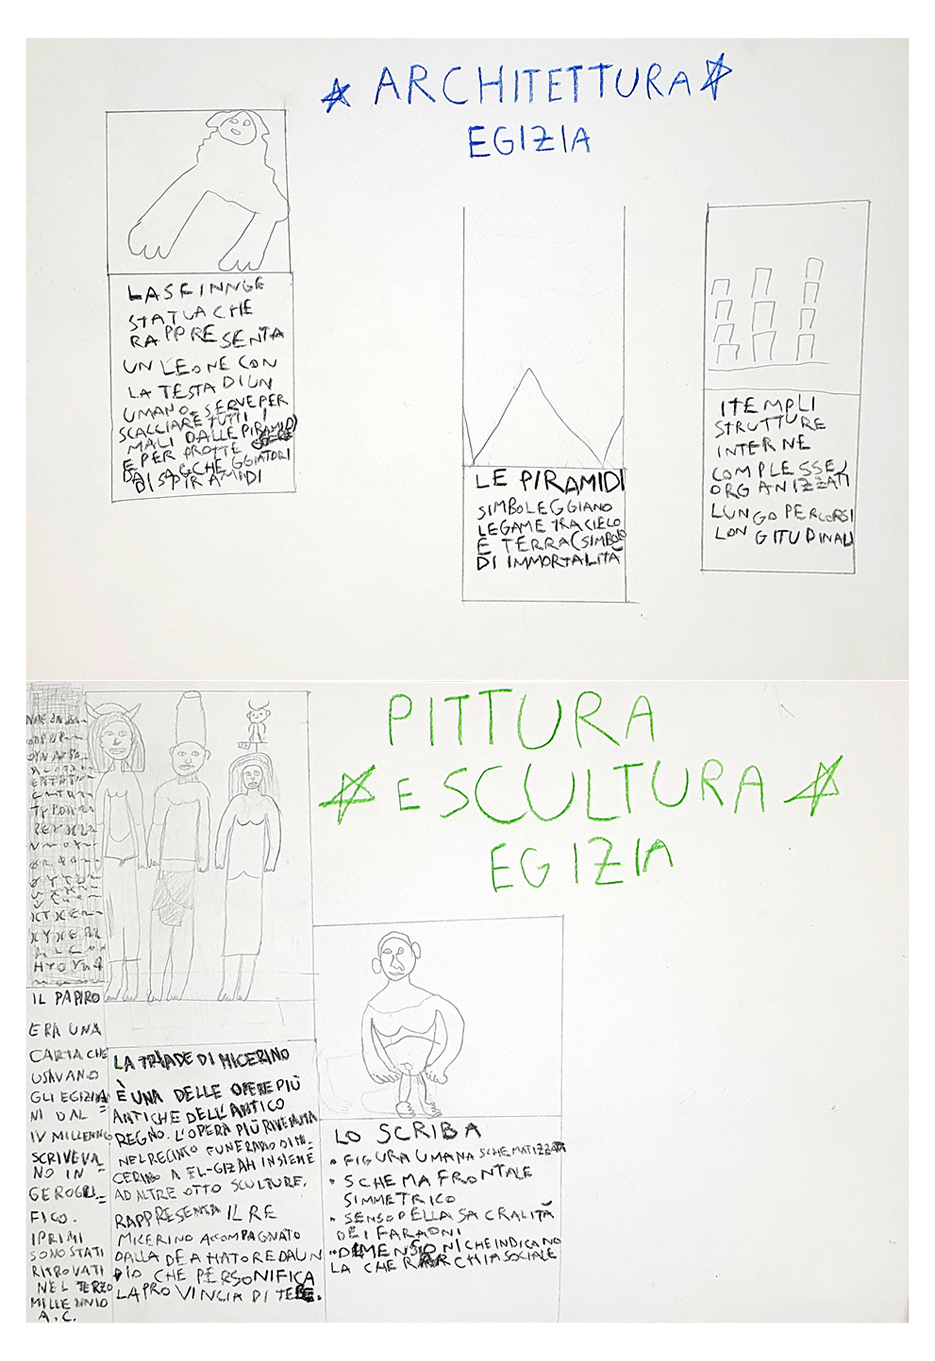 ARCHITETTURA
EGIZIA
LA SFINNGE
STATUA CHE
RAPPRESENTA
UN LEONE CON
LA TESTA DI UN
UMANO. SERVE PER
SCACCIARE TUTTI I
MALI DALLE PIRAMIDI
E PER PROTTE
DAI SACCHEGGIATORI
DI SPIRAMIDI
LE PIRAMIDI
SIMBOLEGGIANO
LEGAME TRA CIELO
E TERRA (SIMBOLO
DI IMMORTALITÀ
I TEMPLI
STRUTTURE
INTERNE
COMPLESSE,
ORGANIZZATI
LUNGO PERCORSI
LONGITUDINALI
PITTURA
E SCULTURA
EGIZIA
IL PAPIRO
ERA UNA
CARTA CHE
USAVANO
GLI EGIZIA=
NI DAL
IV MILLENNIO
SCRIVEVA_
NO IN
GEROGLI_
FICO.
I PRIMI
SONO STATI
RITROVATI
NEL TERZO
MILLENNIO
A.C.
LA TRIADE DI MICERINO
È UNA DELLE OPERE PIÙ
ANTICHE DELL'ANTICO
REGNO. L'OPERA PIÙ
NEL RECINTO FUNERARIO DI MI_
CERINO A EL-GIZAH INSIEME
AD ALTRE OTTO SCULTURE,
RAPPRESENTA IL RE
MICERINO ACCOMPAGNATO
DALLA DEA HATOR E DA UN
DIO CHE PERSONIFICA
LA PROVINCIA DI TEBE.
LO SCRIBA
• FIGURA UMANA SCHEMATIZZATA
• SCHEMA FRONTALE
SIMMETRICO
• SENSO DELLA SACRALITÀ
DEI FARAONI
• DIMENSIONI CHE INDICANO
LA CHERARCHIA SOCIALE